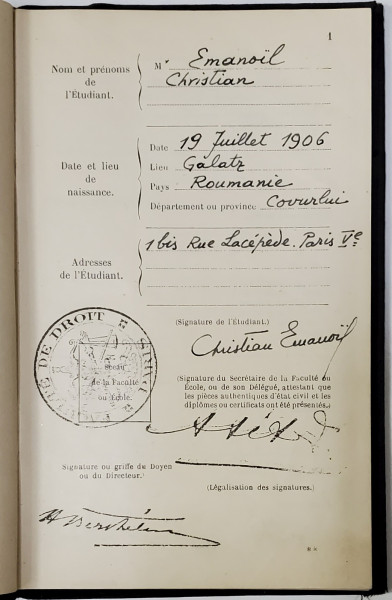 1
Nom et prénoms
de
l'Étudiant.
Mr Emanoïl
Christian
Date et lieu
de
naissance.
Date 19 Juillet 1906
Lieu Galatz
Pays Roumanie
Département ou province Covurlui
Adresses
de l'Étudiant.
1 bis Rue Lacépède. Paris Ve
(Signature de l'Étudiant.)
Christian Emanoïl
DE DROIT
Sceau
de la Faculté
ou École.
(Signature du Secrétaire de la Faculté ou
École, ou de son Délégué, attestant que
les pièces authentiques d'état civil et les
diplômes ou certificats ont été présentés.)
Signature ou griffe du Doyen
ou du Directeur.
(Légalisation des signatures.)
H Berthélemy